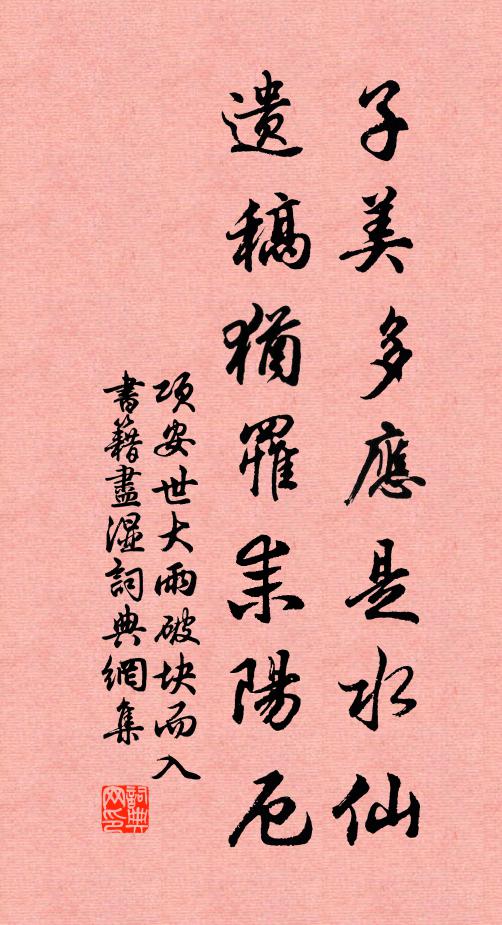 子美多應是水仙
遺稿猶罹耒陽厄
項安世大雨破块而入
書籍盡溼詞典網集
詞典網印